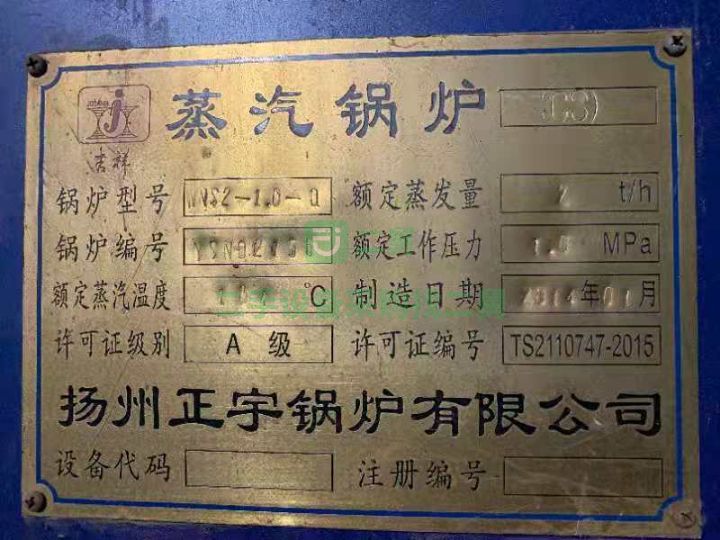 蒸汽锅炉
吉祥
锅炉型号 WNS2-1.0-Q 额定蒸发量 2 t/h
锅炉编号 额定工作压力 1.0 MPa
额定蒸汽温度 ℃ 制造日期 2014年01月
许可证级别 A 级 许可证编号 TS2110747-2015
扬州正宇锅炉有限公司
设备代码 注册编号